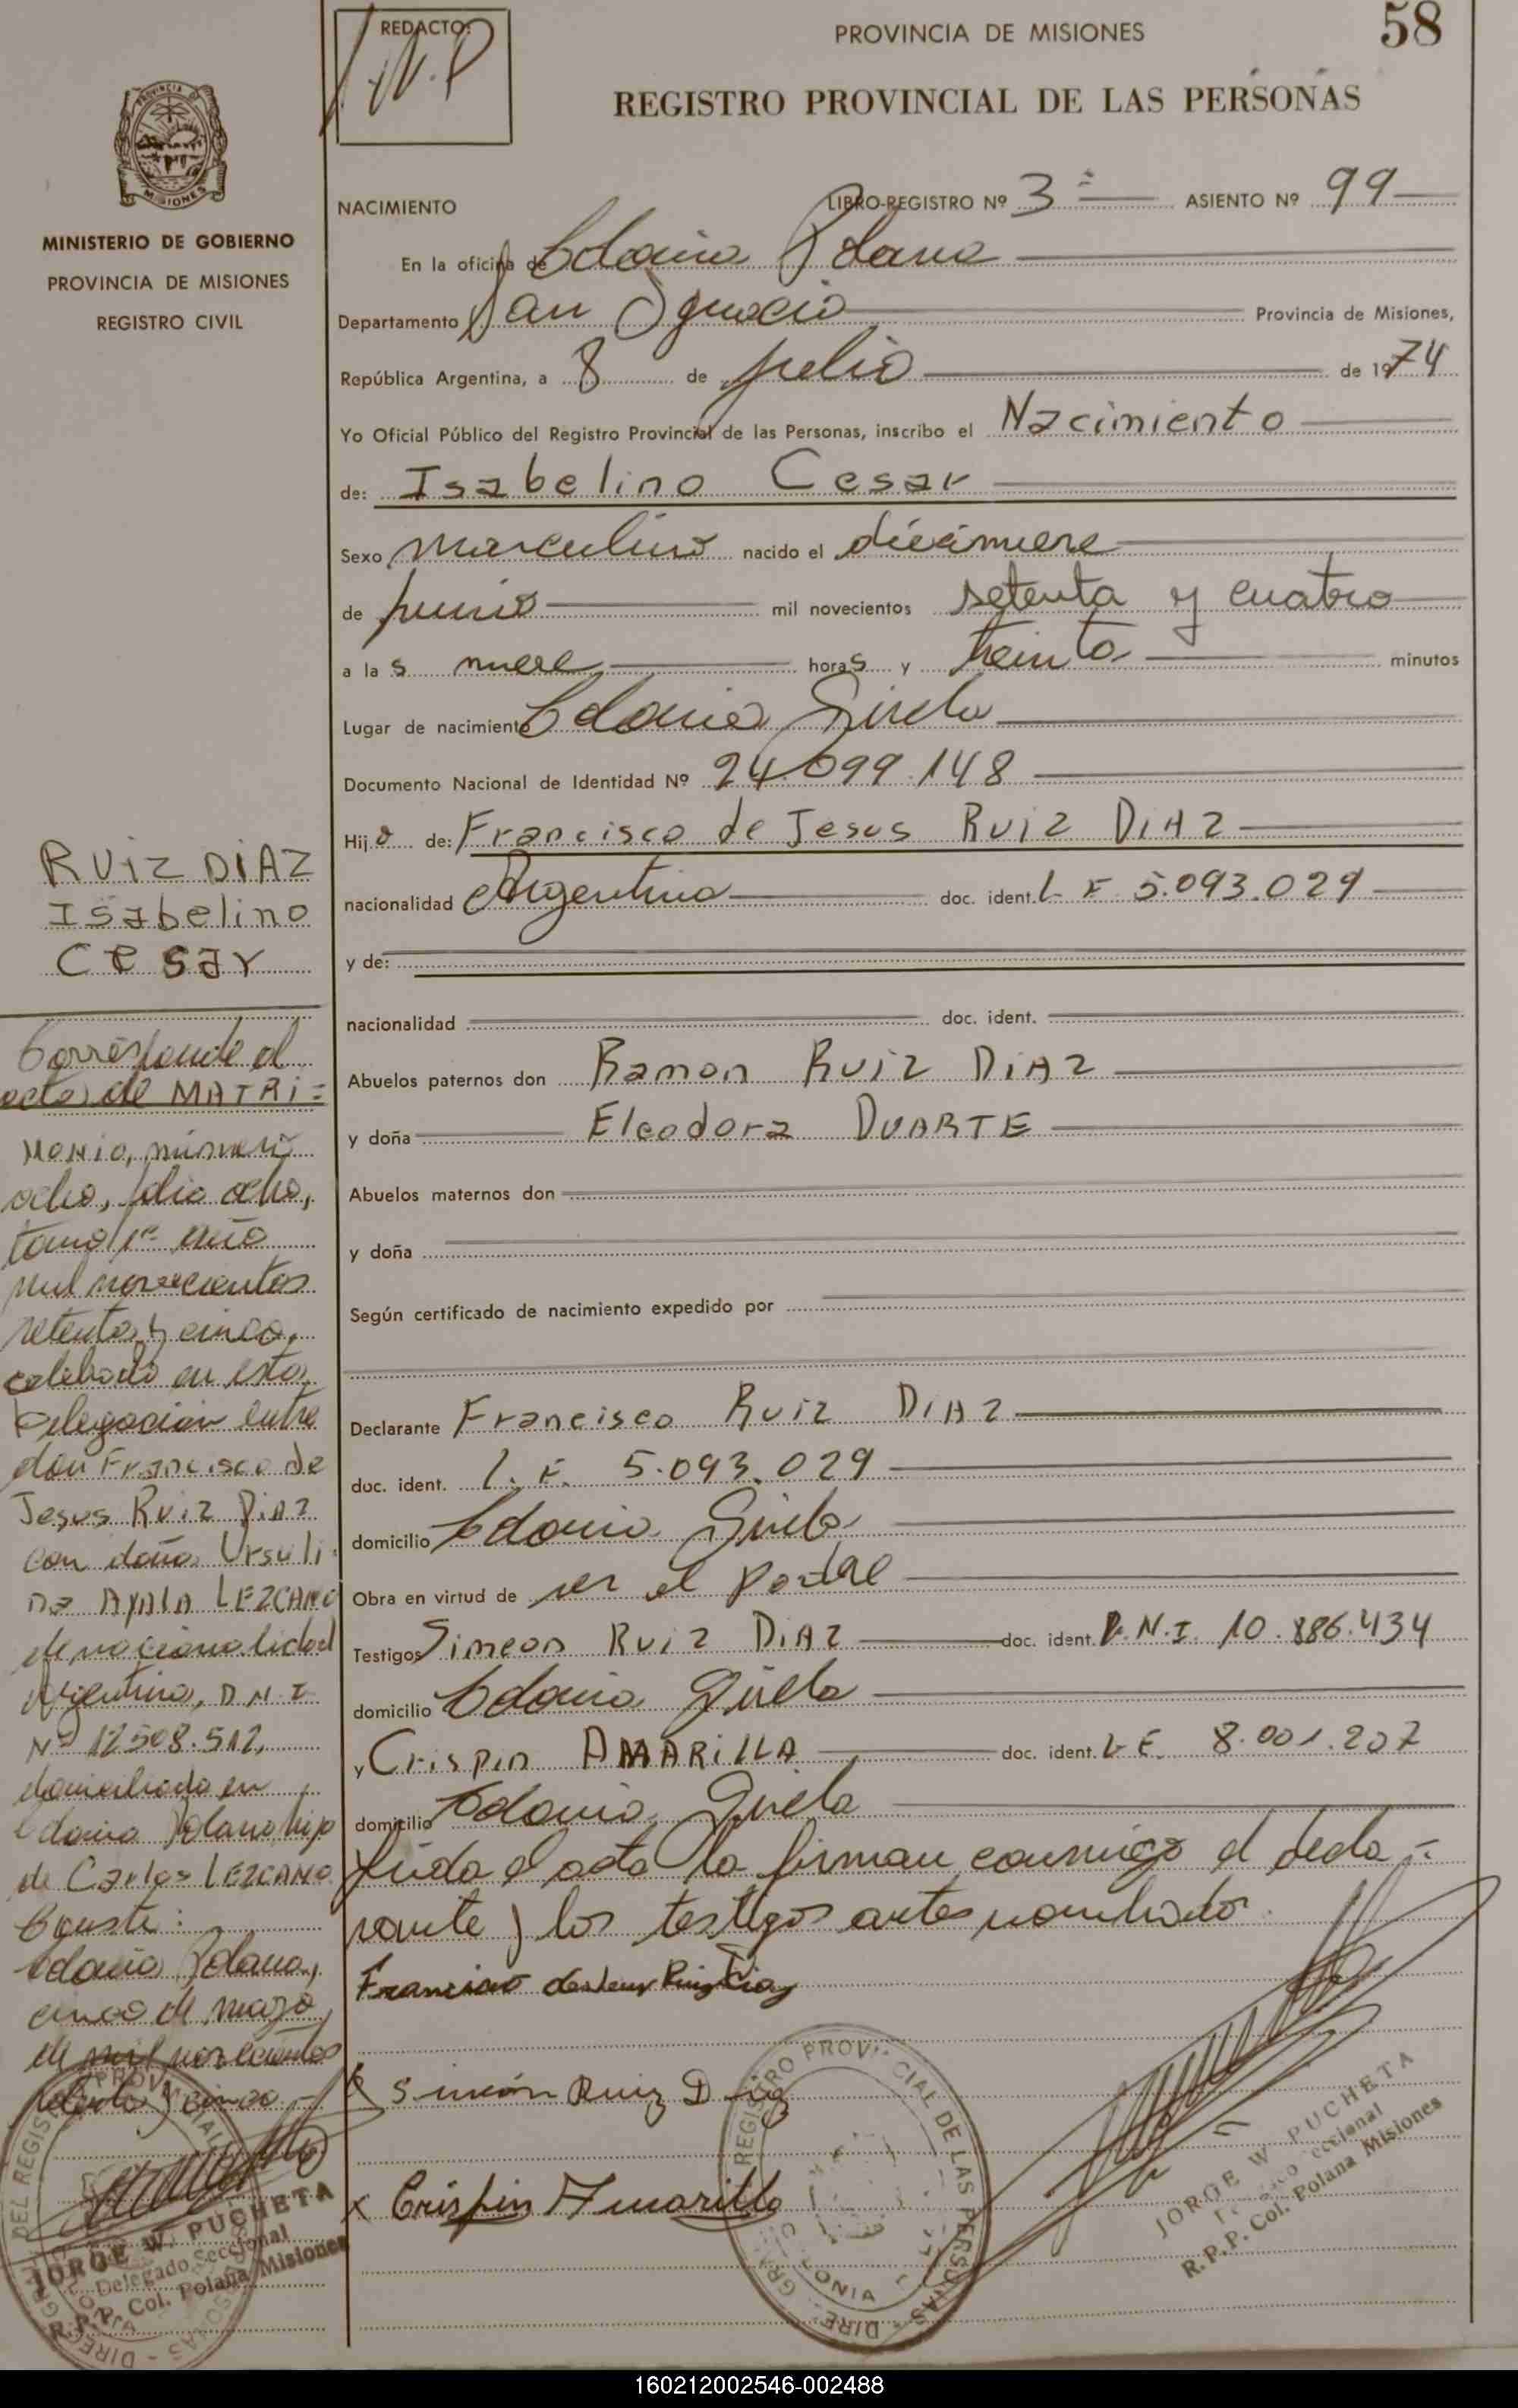 REDACTO:
N.P
PROVINCIA DE MISIONES
58
REGISTRO PROVINCIAL DE LAS PERSONAS
PROVINCIA DE
MISIONES
MINISTERIO DE GOBIERNO
PROVINCIA DE MISIONES
REGISTRO CIVIL
NACIMIENTO
LIBRO-REGISTRO Nº 3º ASIENTO Nº 99
En la oficina de Colonia Polana
Departamento San Ignacio Provincia de Misiones,
República Argentina, a 8 de julio de 1974
Yo Oficial Público del Registro Provincial de las Personas, inscribo el Nacimiento
de: Isabelino Cesar
Sexo masculino nacido el diecinueve
de junio mil novecientos setenta y cuatro
a las nueve horas y treinta minutos
Lugar de nacimiento Colonia
Documento Nacional de Identidad Nº 24.099.148
Hijo de: Francisco de Jesus Ruiz DIAZ
nacionalidad Argentina doc. ident. L E 5.093.029
y de:
nacionalidad doc. ident.
Abuelos paternos don Ramon Ruiz DiAZ
y doña Eleodora DUARTE
Abuelos maternos don
y doña
Según certificado de nacimiento expedido por
Declarante Francisco Ruiz DIAZ
doc. ident. L. E. 5.093.029
domicilio Colonia
Obra en virtud de ser el padre
Testigos Simeon Ruiz DiAZ doc. ident. D.N.I. 10.886.434
domicilio Colonia
y Crispin AMARILLA doc. ident. L E. 8.001.207
domicilio Colonia
Leída el acta la firman conmigo el decla-
rante y los testigos antes nombrados.
Francisco de Jesus Ruiz Diaz
Simeón Ruiz Diaz
x Crispin Amarilla
REGISTRO PROVINCIAL DE LAS PERSONAS
JORGE W. PUCHETA
R.P.P. Col. Polana Misiones
RUiZ DiAZ
Isabelino
Cesar
Corresponde el
acta de MATRI=
MONIO, número
ocho, folio ocho,
tomo 1º año
mil novecientos
setenta y cinco,
celebrado en esta
Delegación entre
don Francisco de
Jesus Ruiz DiAZ
con doña Ursuli-
na AYALA LEZCANO
de nacionalidad
argentina, D N I
Nº 12508.512,
domiciliada en
Colonia Polana hija
de Carlos LEZCANO
Conste:
Colonia Polana,
cinco de mayo
de mil novecientos
setenta y cinco.-
JORGE W. PUCHETA
Delegado Seccional
R.P.P. Col. Polana Misiones
160212002546-002488